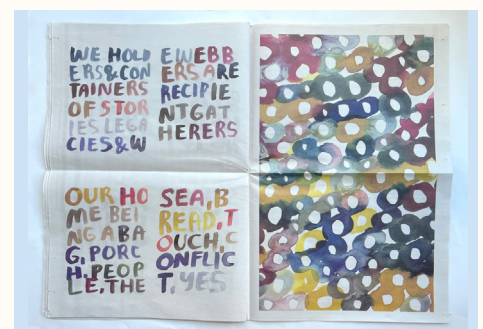 WE HOLD
ERS&CON
TAINERS
OF STOR
IES LEGA
CIES&W
EWEBB
ERS ARE
RECIPIE
NTGAT
HERERS
OUR HO
ME BEI
NG A BA
G, PORC
H, PEOP
LE, THE
SEA, B
READ, T
OUCH, C
ONFLIC
T, YES